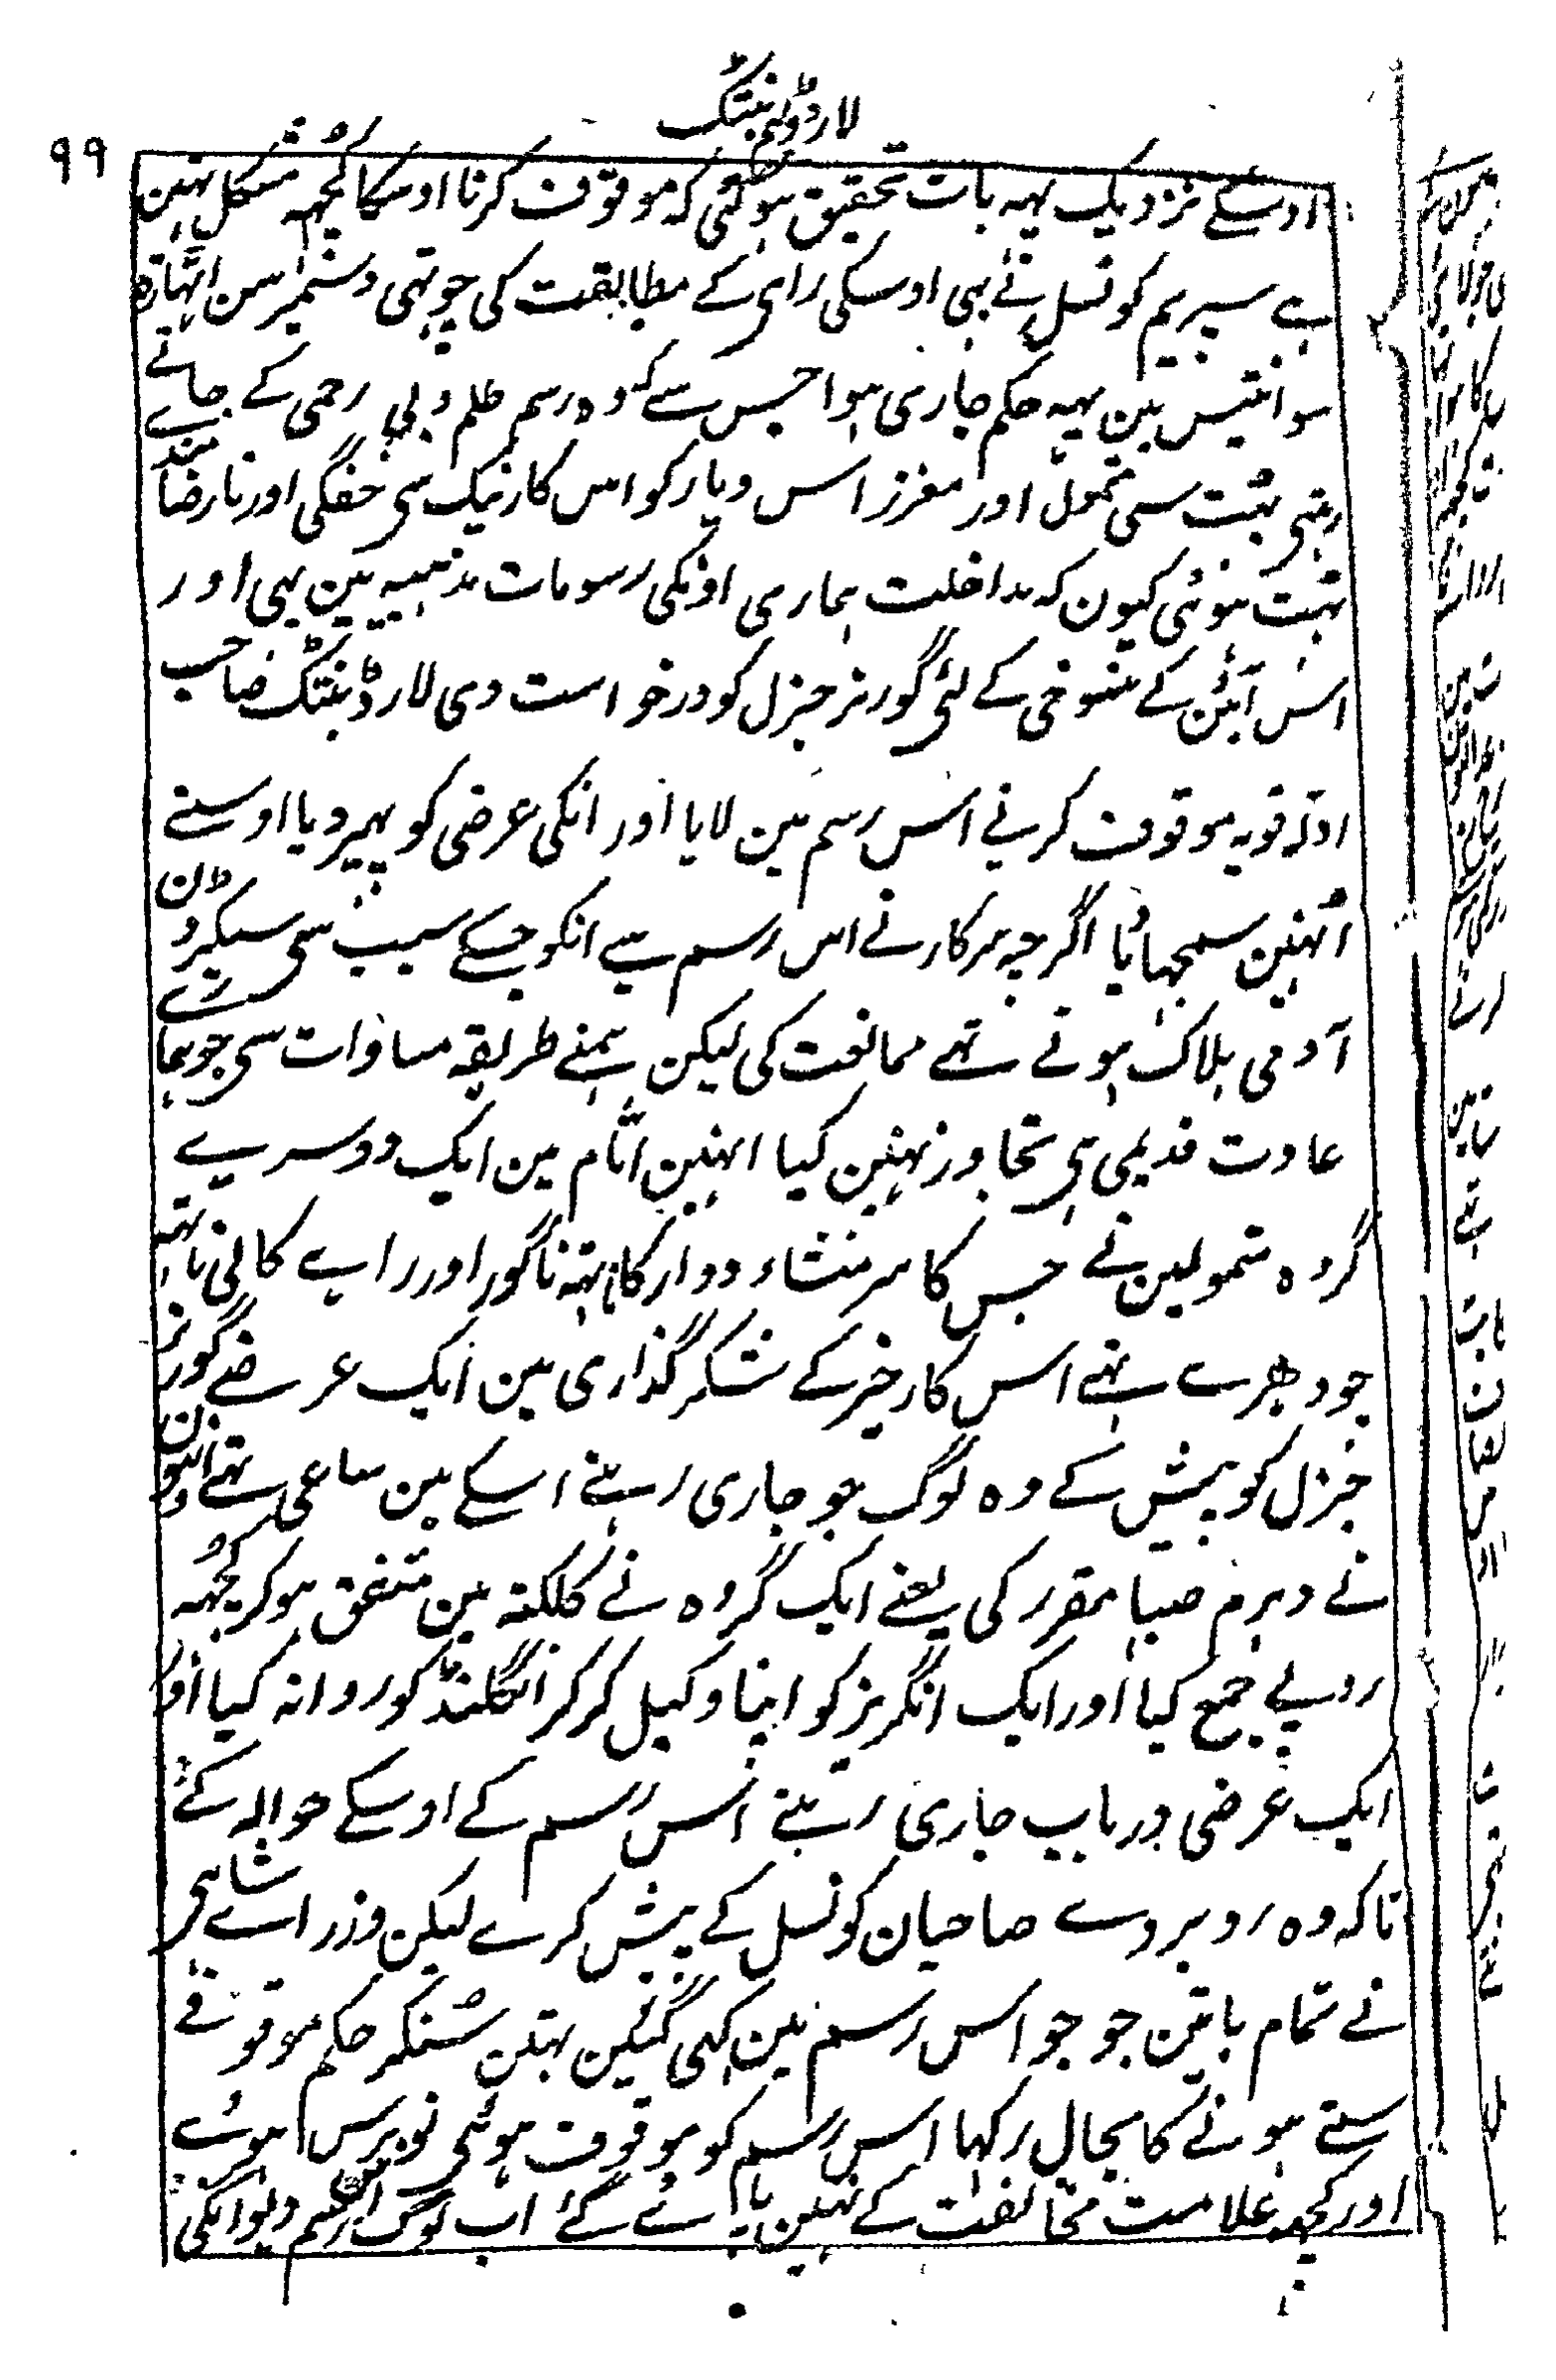 لارڈ ولیم بنٹنک
۹۹
اوسکے نزدیک یہہ بات تحقیق ہوگئی کہ موقوف کرنا اوسکا کچہہ مشکل نہین
ہے سپریم کونسل نے بہی اوسکی رای کے مطابقت کی چوتہی دسمبر سن اٹہارہ
سو انتیس مین یہہ حکم جاری ہوا جس سے کہ وہ رسم ظلم و بی رحمی کے جاتے
رہتی بہت سی متمول اور معزز اس دیار کو اس کار نیک سی خفگی اور نارضامندے
بہت ہوئی کیون کہ مداخلت ہماری اونکی رسومات مذہبیہ مین ہی اور
اس آئن کے منسوخی کے لئی گورنر جنرل کو درخواست دی لارڈ بنٹنک صاحب
ادلہ قویہ موقوف کرنے اس رسم مین لایا اور انکی عرضی کو پہیر دیا اوسنے
اُنہین سمجہایا اگرچہ سرکار نے اس رسم سے انکو جسکے سبب سی سیکڑون
آدمی ہلاک ہوتے تہے ممانعت کی لیکن ہمنے طریقہ مساوات سی جو ہمارے
عادت قدیمی ہی تجاوز نہین کیا انہین ایام مین ایک دوسریے
گروہ متمولین نے جس کا سر منشاء دوارکاناتہہ ٹاگور اور راے کالی ناتہہ
چودھرے تہے اس کار خیر کے شکر گذاری مین ایک عرضے گورنر
جنرل کو پیش کے وہ لوگ جو جاری رہنے اسکے مین ساعی تہے انہون
نے دہرم صبا مقرر کی یعنے ایک گروہ نے کلکتہ مین متفق ہوکر کچہہ
روپے جمع کیا اور ایک انگریز کو اپنا وکیل کرکر انگلنڈ کو روانہ کیا اور
ایک عرضی در باب جاری رہنے اس رسم کے اوسکے حوالہ کے
تاکہ وہ روبروے صاحبان کونسل کے پیش کرے لیکن وزراے شاہی
نے تمام باتین جو جو اس رسم مین کہی گئین تہین سُنکر حکم موقوفے
ستے ہونے کا بحال رکہا اس رسم کو موقوف ہوئی نو برس ہوے
اور کچہہ علامت مخالفت کے نہین پائے گئے اب لوگ اس رسم دیوانگی